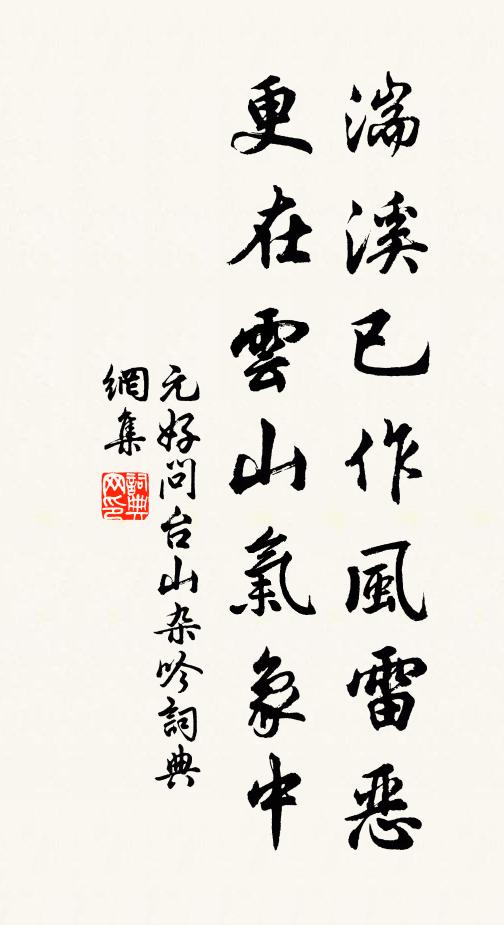 湍溪已作風雷惡
更在雲山氣象中
元好問台山杂吟詞典
網集
詞典
网印